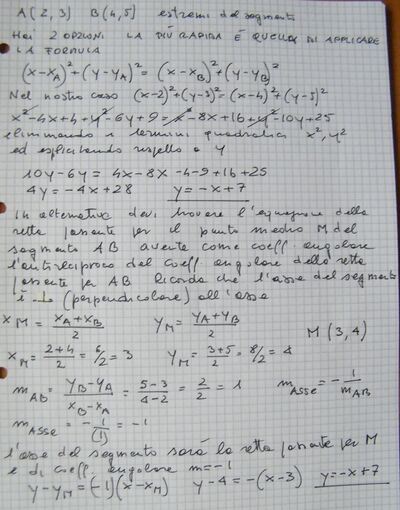 A(2,3) B(4,5) estremi del segmento
Hai 2 OPZIONI LA PIÙ RAPIDA È QUELLA DI APPLICARE
LA FORMULA
(x-x_A)²+(y-y_A)²=(x-x_B)²+(y-y_B)²
Nel nostro caso (x-2)²+(y-3)²=(x-4)²+(y-5)²
x²-4x+4+y²-6y+9=x²-8x+16+y²-10y+25
eliminando i termini quadratici x², y²
ed esplicitando rispetto a y
10y-6y = 4x-8x-4-9+16+25
4y=-4x+28 y=-x+7
In alternativa devi trovare l'equazione della
retta passante per il punto medio M del
segmento AB avente come coeff. angolare
l'antireciproco del coeff. angolare della retta
passante per AB Ricorda che l'asse del segmento
è ⊥ (perpendicolare) all'asse
x_M = (x_A+x_B)/2 y_M = (y_A+y_B)/2 M(3,4)
x_M = (2+4)/2 = 6/2 = 3 y_M = (3+5)/2 = 8/2 = 4
m_AB = (y_B-y_A)/(x_B-x_A) = (5-3)/(4-2) = 2/2 = 1 m_Asse = -1/m_AB
m_Asse = -1/(1) = -1
l'asse del segmento sarà la retta passante per M
e di coeff. angolare m=-1
y-y_M=(-1)(x-x_M) y-4=-(x-3) y=-x+7